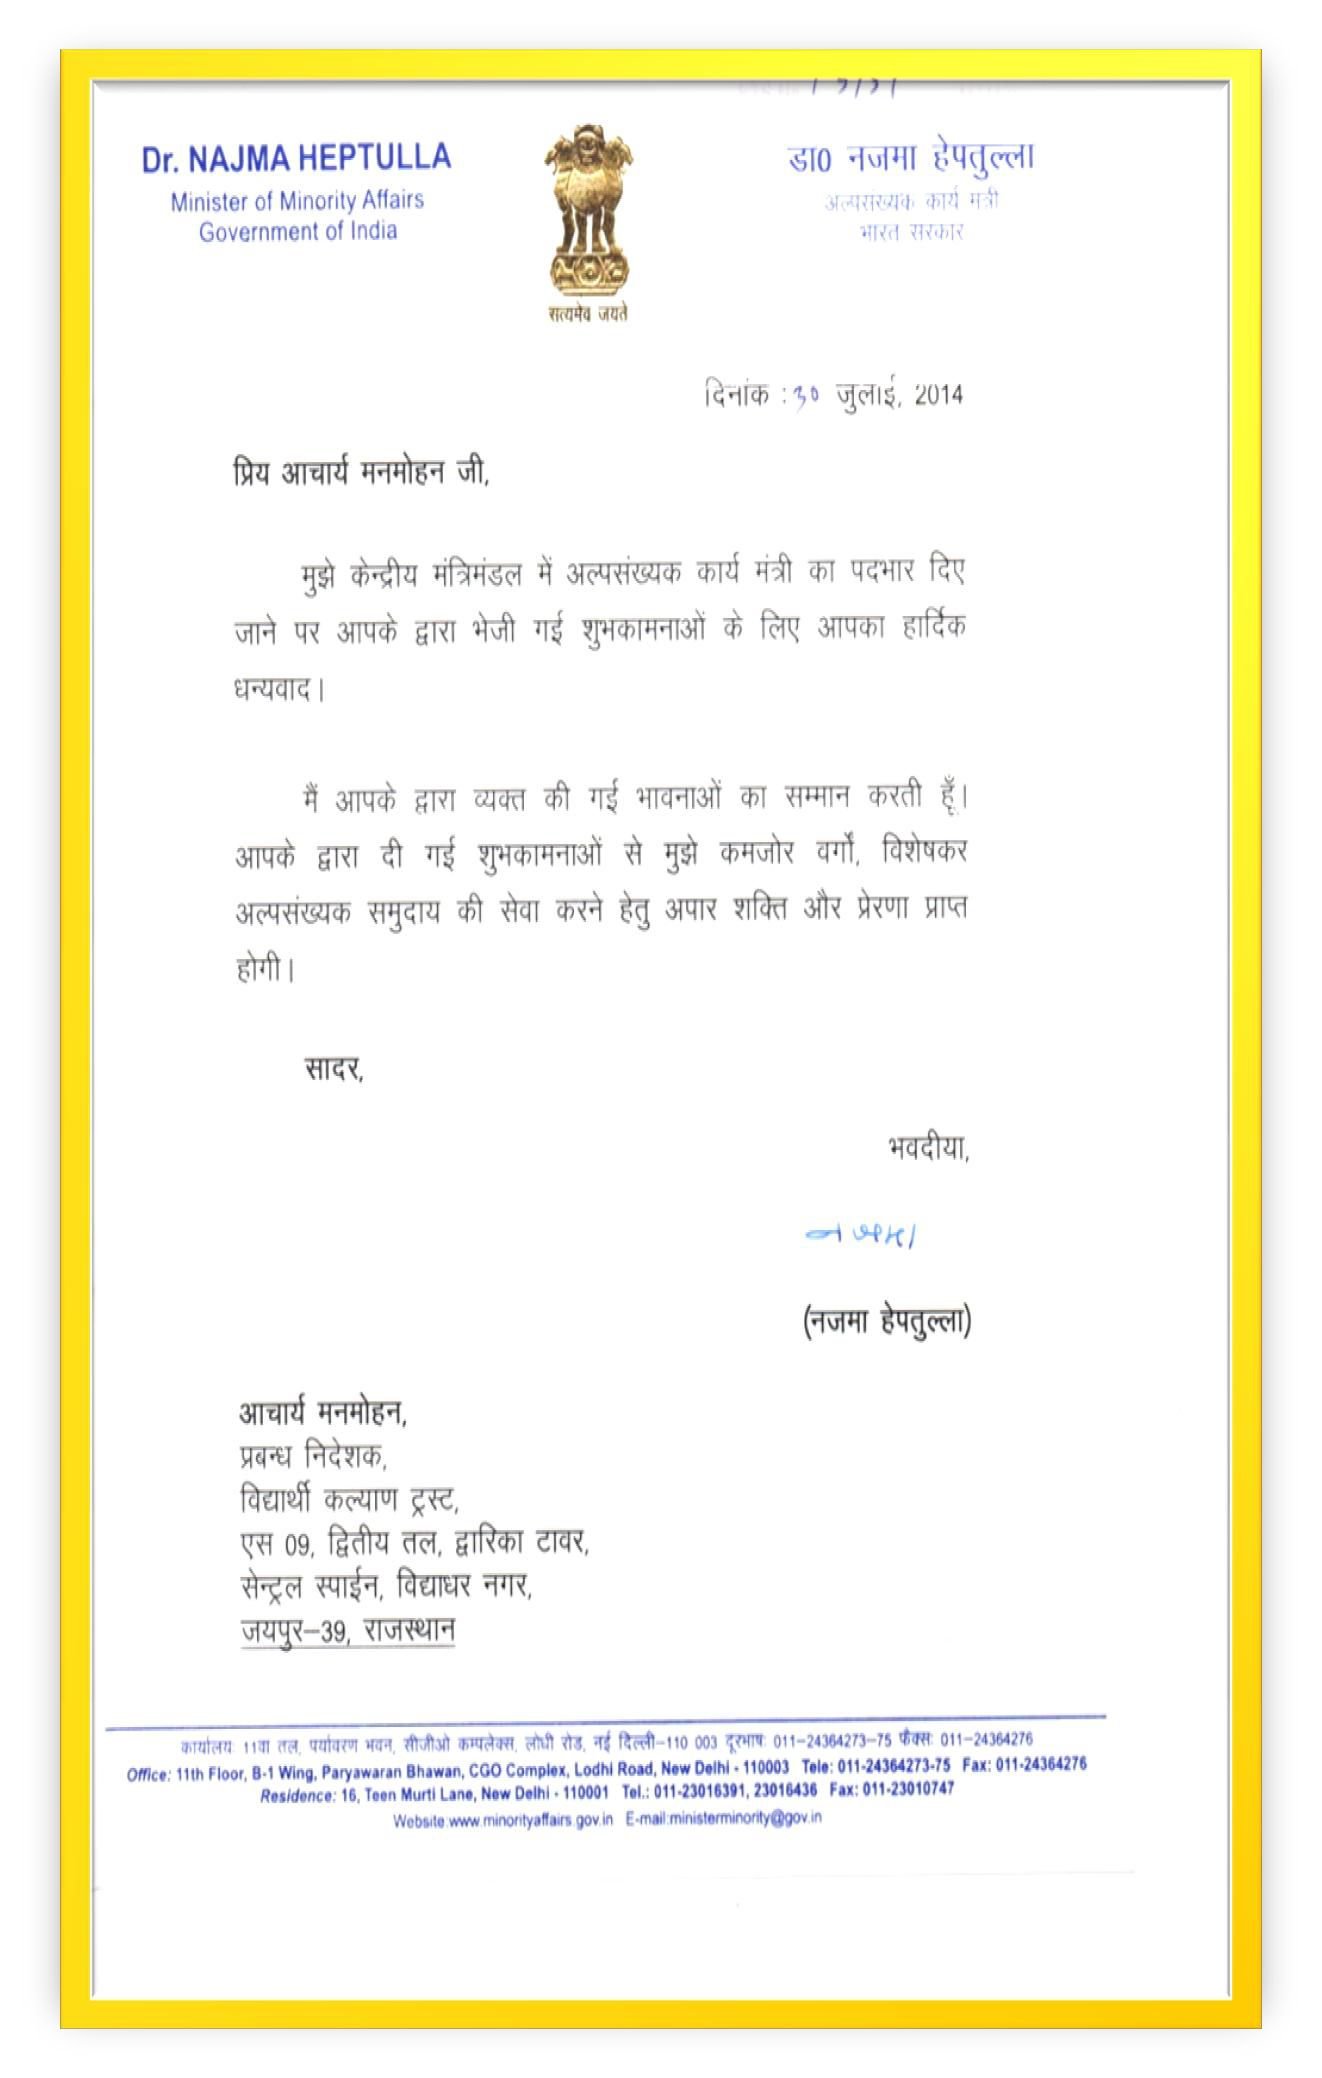 Dr. NAJMA HEPTULLA
Minister of Minority Affairs
Government of India
सत्यमेव जयते
डा0 नजमा हेपतुल्ला
अल्पसंख्यक कार्य मंत्री
भारत सरकार
दिनांक : 30 जुलाई, 2014
प्रिय आचार्य मनमोहन जी,
मुझे केन्द्रीय मंत्रिमंडल में अल्पसंख्यक कार्य मंत्री का पदभार दिए
जाने पर आपके द्वारा भेजी गई शुभकामनाओं के लिए आपका हार्दिक
धन्यवाद।
मैं आपके द्वारा व्यक्त की गई भावनाओं का सम्मान करती हूँ।
आपके द्वारा दी गई शुभकामनाओं से मुझे कमजोर वर्गों, विशेषकर
अल्पसंख्यक समुदाय की सेवा करने हेतु अपार शक्ति और प्रेरणा प्राप्त
होगी।
सादर,
भवदीया,
नजमा
(नजमा हेपतुल्ला)
आचार्य मनमोहन,
प्रबन्ध निदेशक,
विद्यार्थी कल्याण ट्रस्ट,
एस 09, द्वितीय तल, द्वारिका टावर,
सेन्ट्रल स्पाईन, विद्याधर नगर,
जयपुर–39, राजस्थान
कार्यालय: 11वा तल, पर्यावरण भवन, सीजीओ कम्पलेक्स, लोधी रोड, नई दिल्ली–110 003 दूरभाष: 011–24364273–75 फैक्स: 011–24364276
Office: 11th Floor, B-1 Wing, Paryawaran Bhawan, CGO Complex, Lodhi Road, New Delhi - 110003 Tele: 011-24364273-75 Fax: 011-24364276
Residence: 16, Teen Murti Lane, New Delhi - 110001 Tel.: 011-23016391, 23016436 Fax: 011-23010747
Website:www.minorityaffairs.gov.in E-mail:ministerminority@gov.in